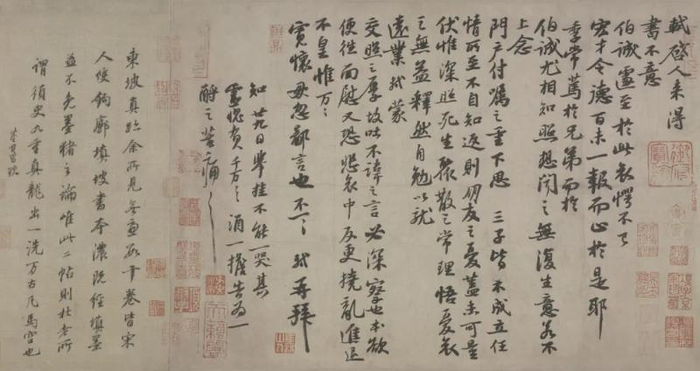 軾啓人來得
書不意
伯誠遽至於此哀愕不已
宏才令德百未一報而止於是耶
季常篤於兄弟而於
伯誠尤相知照想聞之無復生意若不
上念
門戶付囑之重下思三子皆不成立任
情所至不自知返則朋友之憂蓋未可量
伏惟深照死生聚散之常理悟憂哀
之無益釋然自勉以就
遠業軾蒙
交照之厚故吐不諱之言必深察也本欲
便往面慰又恐悲哀中反更撓亂進退
不皇惟萬萬
寬懷毋忽鄙言也不一一軾再拜
知廿九日舉掛不能一哭其
靈愧負千万千万酒一擔告為一
酹之苦痛苦痛
東坡真跡余所見無慮數十卷皆宋
人雙鉤廓填坡書本濃既經填墨
益不免墨豬之論惟此二帖則杜老所
謂須臾九重真龍出一洗萬古凡馬空也
董其昌跋